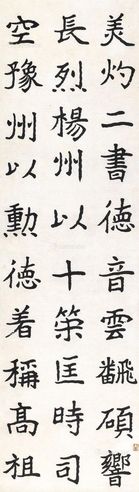 美灼二書德音雲飜碩響
長烈楊州以十策匡時司
空豫州以勲德着稱髙祖